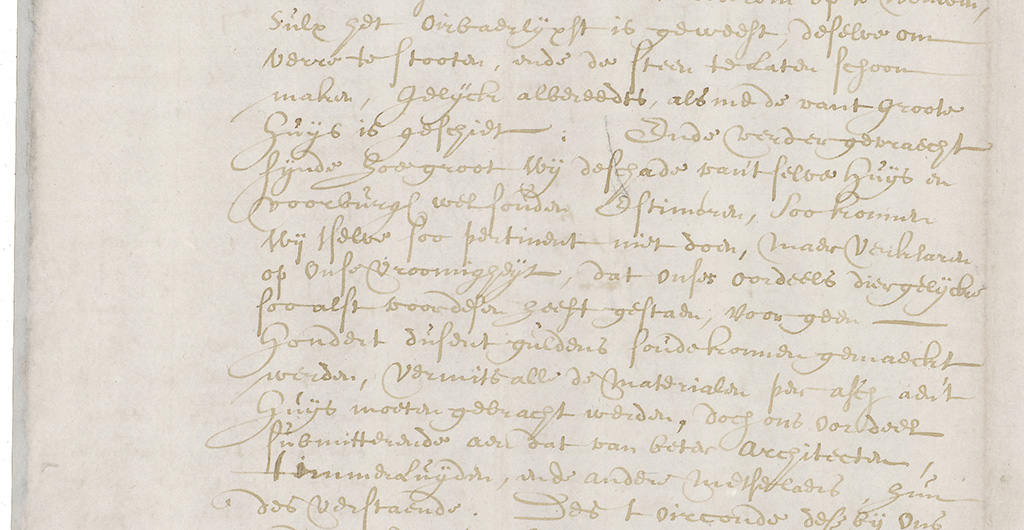 op te nemen,
Sulx het oirbaerlyxst is geweest, deselve om
verre te stooten, ende de steen te laten schoon
maken, Gelyck albereedts, als me de vant Groote
Huys is geschiet. Ende verder gevraecht
synde hoe groot wij de schade vant selve Huys en
voorburgh wel souden Estimeren, Soo konnen
Wij tselve soo pertinent niet doen, maer Verklaren
op Onse Vroomigheyt, dat Onses oordeels diergelycke
soo alst voor desen heeft gestaen, voor geen
Hondert dusent guldens soude konnen gemaeckt
werden, Vermits alle de Materialen per asch aen't
Huys moeten gebracht werden, doch ons oordeel
submitterende aen dat van beter Architecten,
timmerluyden, ende andere Metselaers, hun
des verstaende. Des t Oirconde dese bij Ons